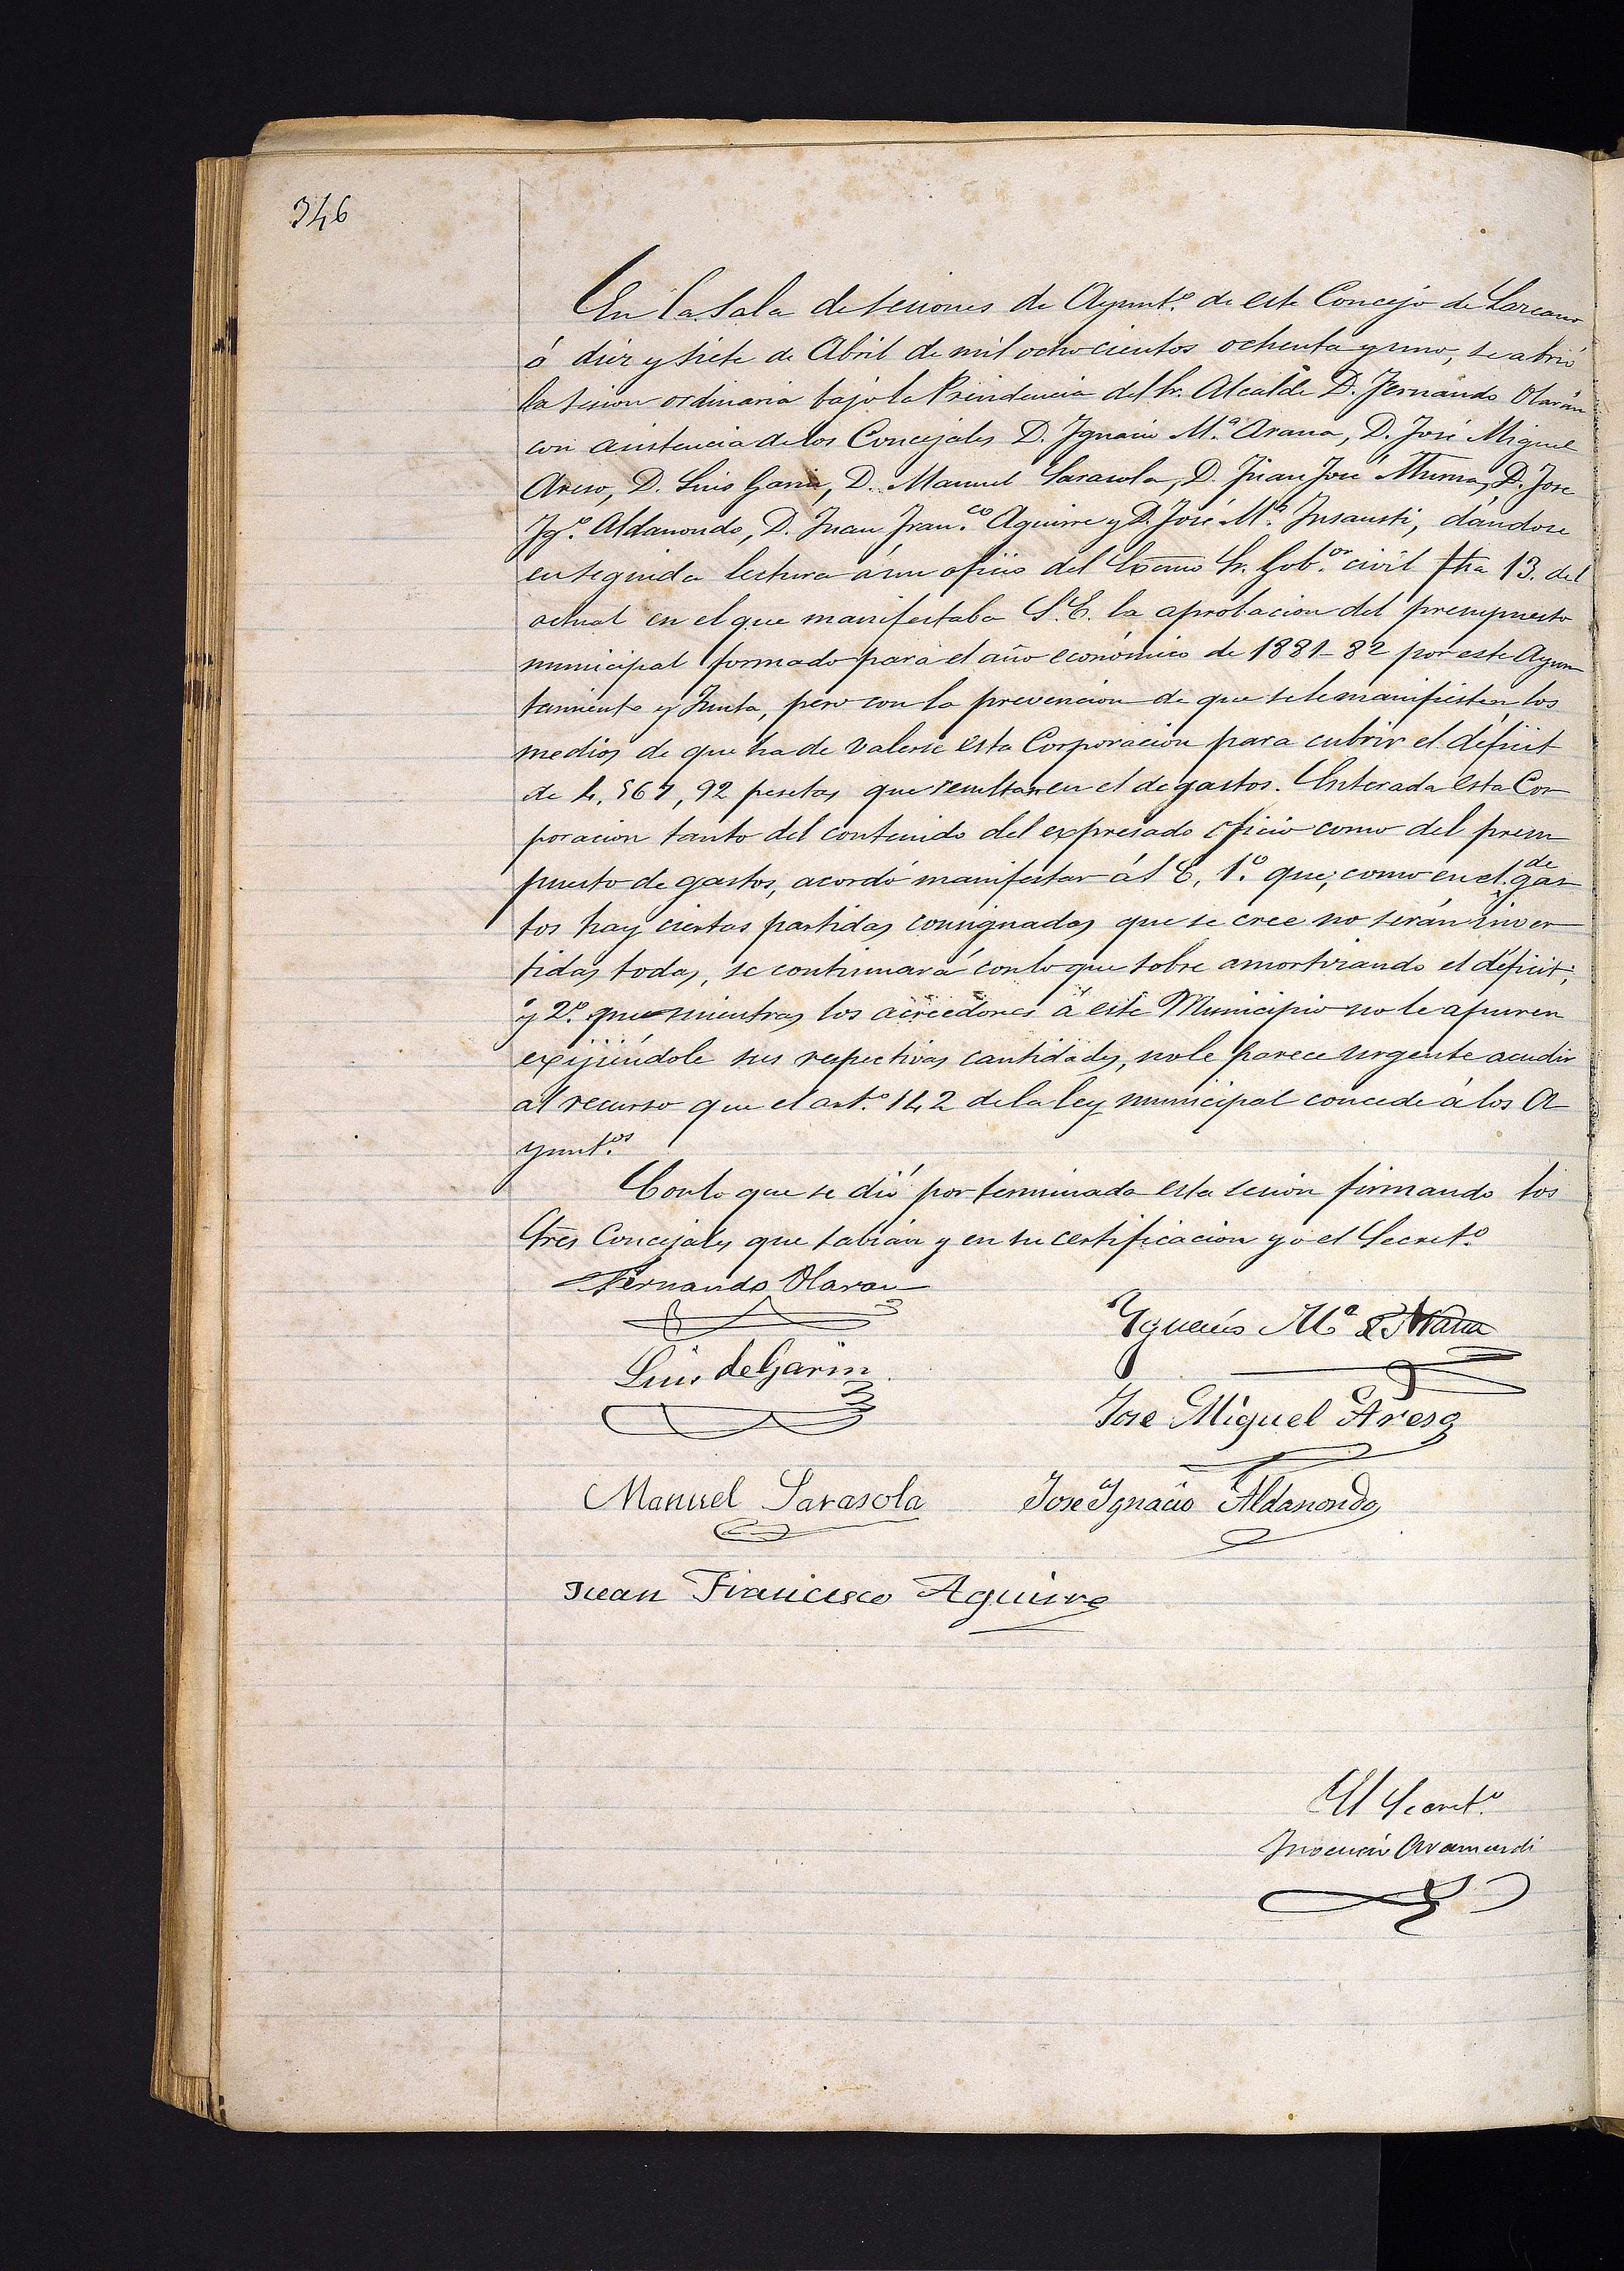 346
En la sala de sesiones de Ayunt.º de este Concejo de Lazcano
á diez y siete de Abril de mil ochocientos ochenta y uno, se abrió
la sesion ordinaria bajo la Presidencia del Sr. Alcalde D. Fernando Olarán
con asistencia de los Concejales D. Ignacio M.ª Arana, D. José Miguel
Areso, D. Luis Garin, D. Manuel Sarasola, D. Juan José D. Jose
Ig.º Aldanondo, D. Juan Fran.co Aguirre y D. José M.ª Insausti, dándose
en seguida lectura á un oficio del Excmo Sr. Gob.or civil fha 13. del
actual en el que manifestaba S.E. la aprobacion del presupuesto
municipal formado para el año económico de 1881-82 por este Ayun
tamiento y Junta, pero con la prevencion de que se le manifiesten los
medios de que ha de valerse esta Corporacion para cubrir el déficit
de 4,567,92 pesetas que resultan en el de gastos. Enterada esta Cor
poracion tanto del contenido del expresado oficio como del presu
puesto de gastos, acordó manifestar á S E, 1.º que, como en el de gas
tos hay ciertas partidas consignadas que se cree no serán inver
tidas todas, se continuará con lo que sobre amortizando el déficit;
y 2.º que mientras los acreedores á este Municipio no le apuren
exijiéndole sus respectivas cantidades, no le parece urgente acudir
al recurso que el art.º 142 de la ley municipal concede á los A
yunt.os
Con lo que se dió por terminada esta sesion firmando los
Sres Concejales que sabian y en su certificacion yo el Secret.º
Fernando Olaran
Ygnacio Mª Arana
Luis de Garin
Jose Miguel Areso
Manuel Sarasola Jose Ignacio Aldanondo
Juan Francisco Aguirre
El Secret.º
Inocencio Aramendi